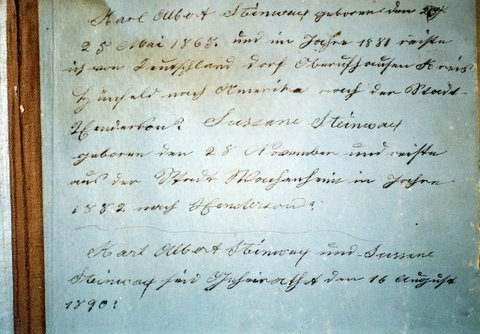 Karl Albert Steinway geboren den
25 Mai 1865. und im Jahre 1881 reiste
ich von Deutschland dorf Oberufhausen Kreis
Hünfeld nach Amerika nach der Stadt
Henderson? Sussane Steinway
geboren den 28 November und reiste
aus der Stadt Wachenheim im Jahre
1882 nach Henderson?
Karl Albert Steinway und Sussane
Steinway sind Geheirathet den 16 August
1890?